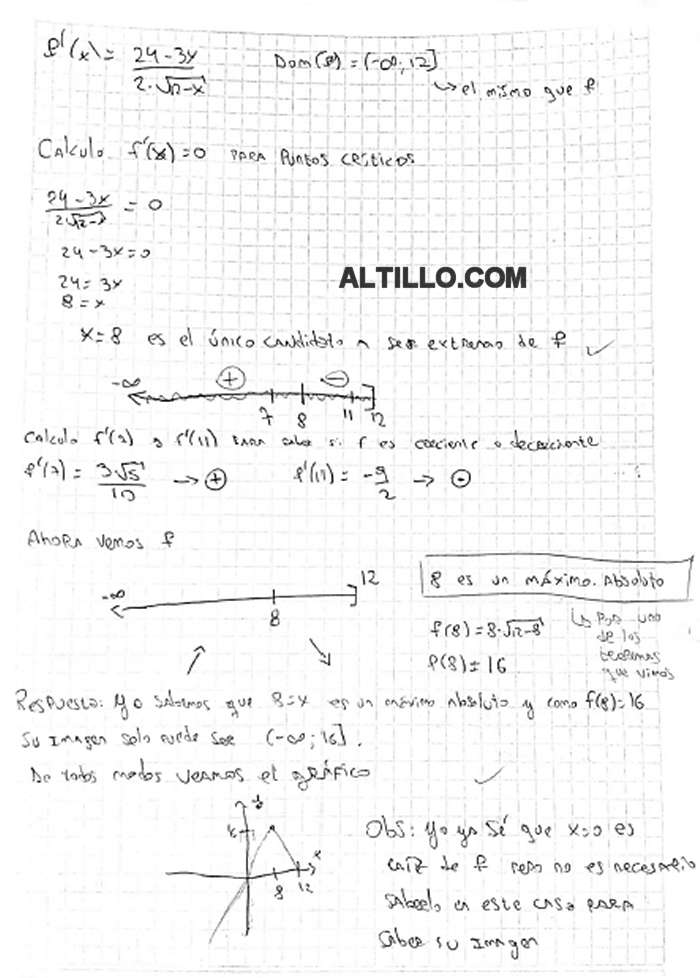 f'(x) = (24-3x)/(2·√12-x)   Dom(f) = (-∞; 12]
↳ el mismo que f
Calculo f'(x) = 0 para puntos críticos
(24-3x)/(2√12-x) = 0
24-3x=0
24=3x
8=x
ALTILLO.COM
x=8 es el único candidato a ser extremo de f ✓
-∞ ⊕ ⊖
7 8 11 12
Calculo f'(7) y f'(11) para saber si f es creciente o decreciente
f'(7) = 3√5/10 → ⊕   f'(11) = -9/2 → ⊖
Ahora vemos f
-∞ 8 12
↗ ↘
8 es un máximo. Absoluto
↳ Por uno de los teoremas que vimos
f(8)=8·√12-8
f(8)=16
Respuesta: Yo sabemos que 8=x es un máximo absoluto y como f(8)=16
Su imagen solo puede ser (-∞; 16].
De todos modos veamos el gráfico ✓
x
8 12
Obs: Yo ya sé que x=0 es
raíz de f pero no es necesario
saberlo en este caso para
saber su imagen